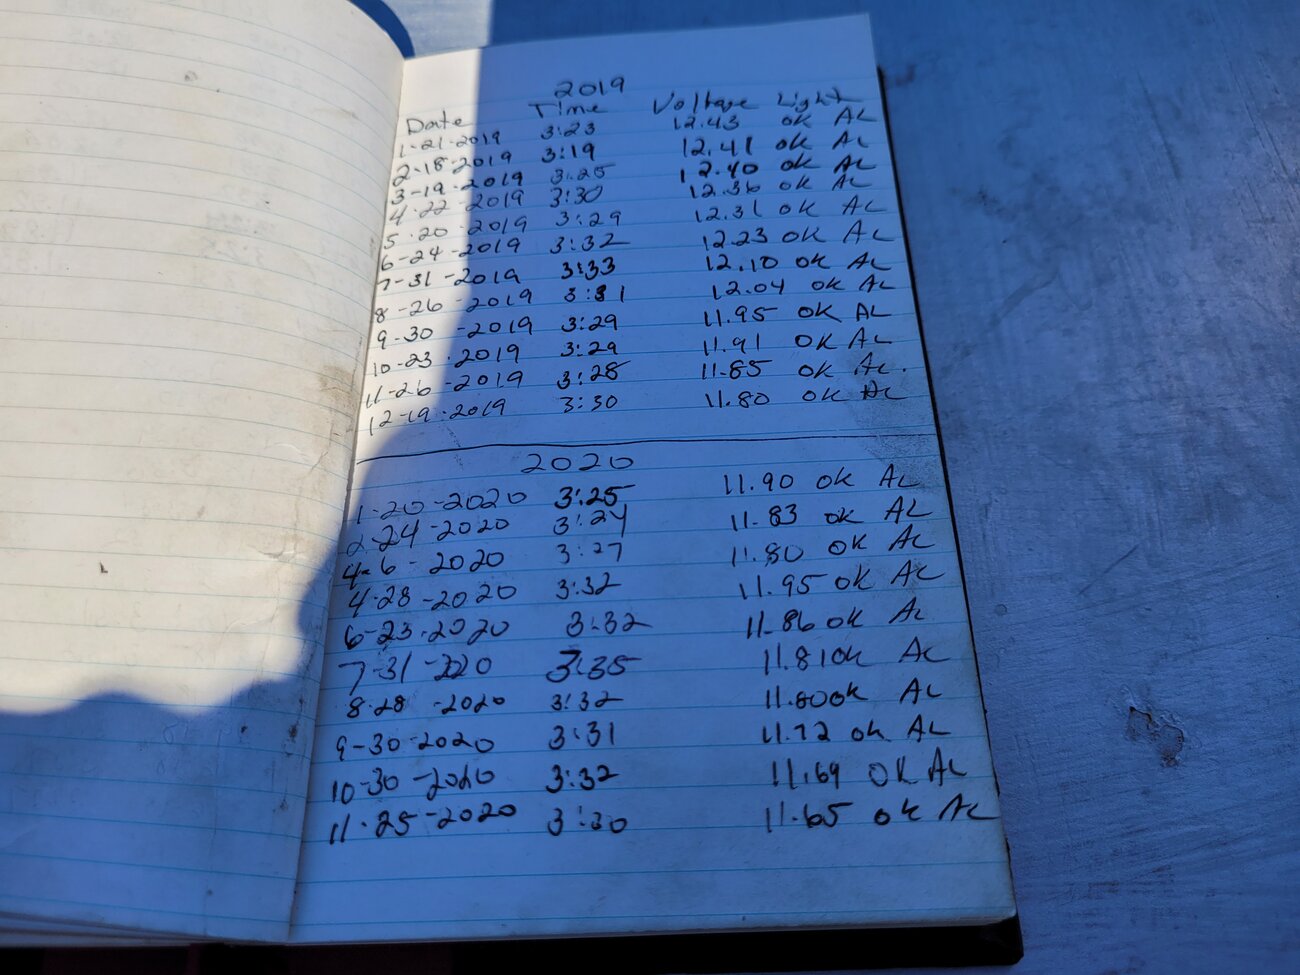 2019
Date Time Voltage Light
1-21-2019 3:23 12.43 OK AL
2-18-2019 3:19 12.41 OK AL
3-19-2019 3:25 12.40 OK AL
4-22-2019 3:30 12.36 OK AL
5-20-2019 3:29 12.31 OK AL
6-24-2019 3:32 12.23 OK AL
7-31-2019 3:33 12.10 OK AL
8-26-2019 3:31 12.04 OK AL
9-30-2019 3:29 11.95 OK AL
10-23-2019 3:29 11.91 OK AL
11-26-2019 3:28 11.85 OK AL
12-19-2019 3:30 11.80 OK AL
2020
1-20-2020 3:25 11.90 OK AL
2-24-2020 3:24 11.83 OK AL
4-6-2020 3:27 11.80 OK AL
4-28-2020 3:32 11.95 OK AL
6-23-2020 3:32 11.86 OK AL
7-31-2020 3:35 11.81 OK AL
8-28-2020 3:32 11.80 OK AL
9-30-2020 3:31 11.72 OK AL
10-30-2020 3:32 11.69 OK AL
11-25-2020 3:30 11.65 OK AL